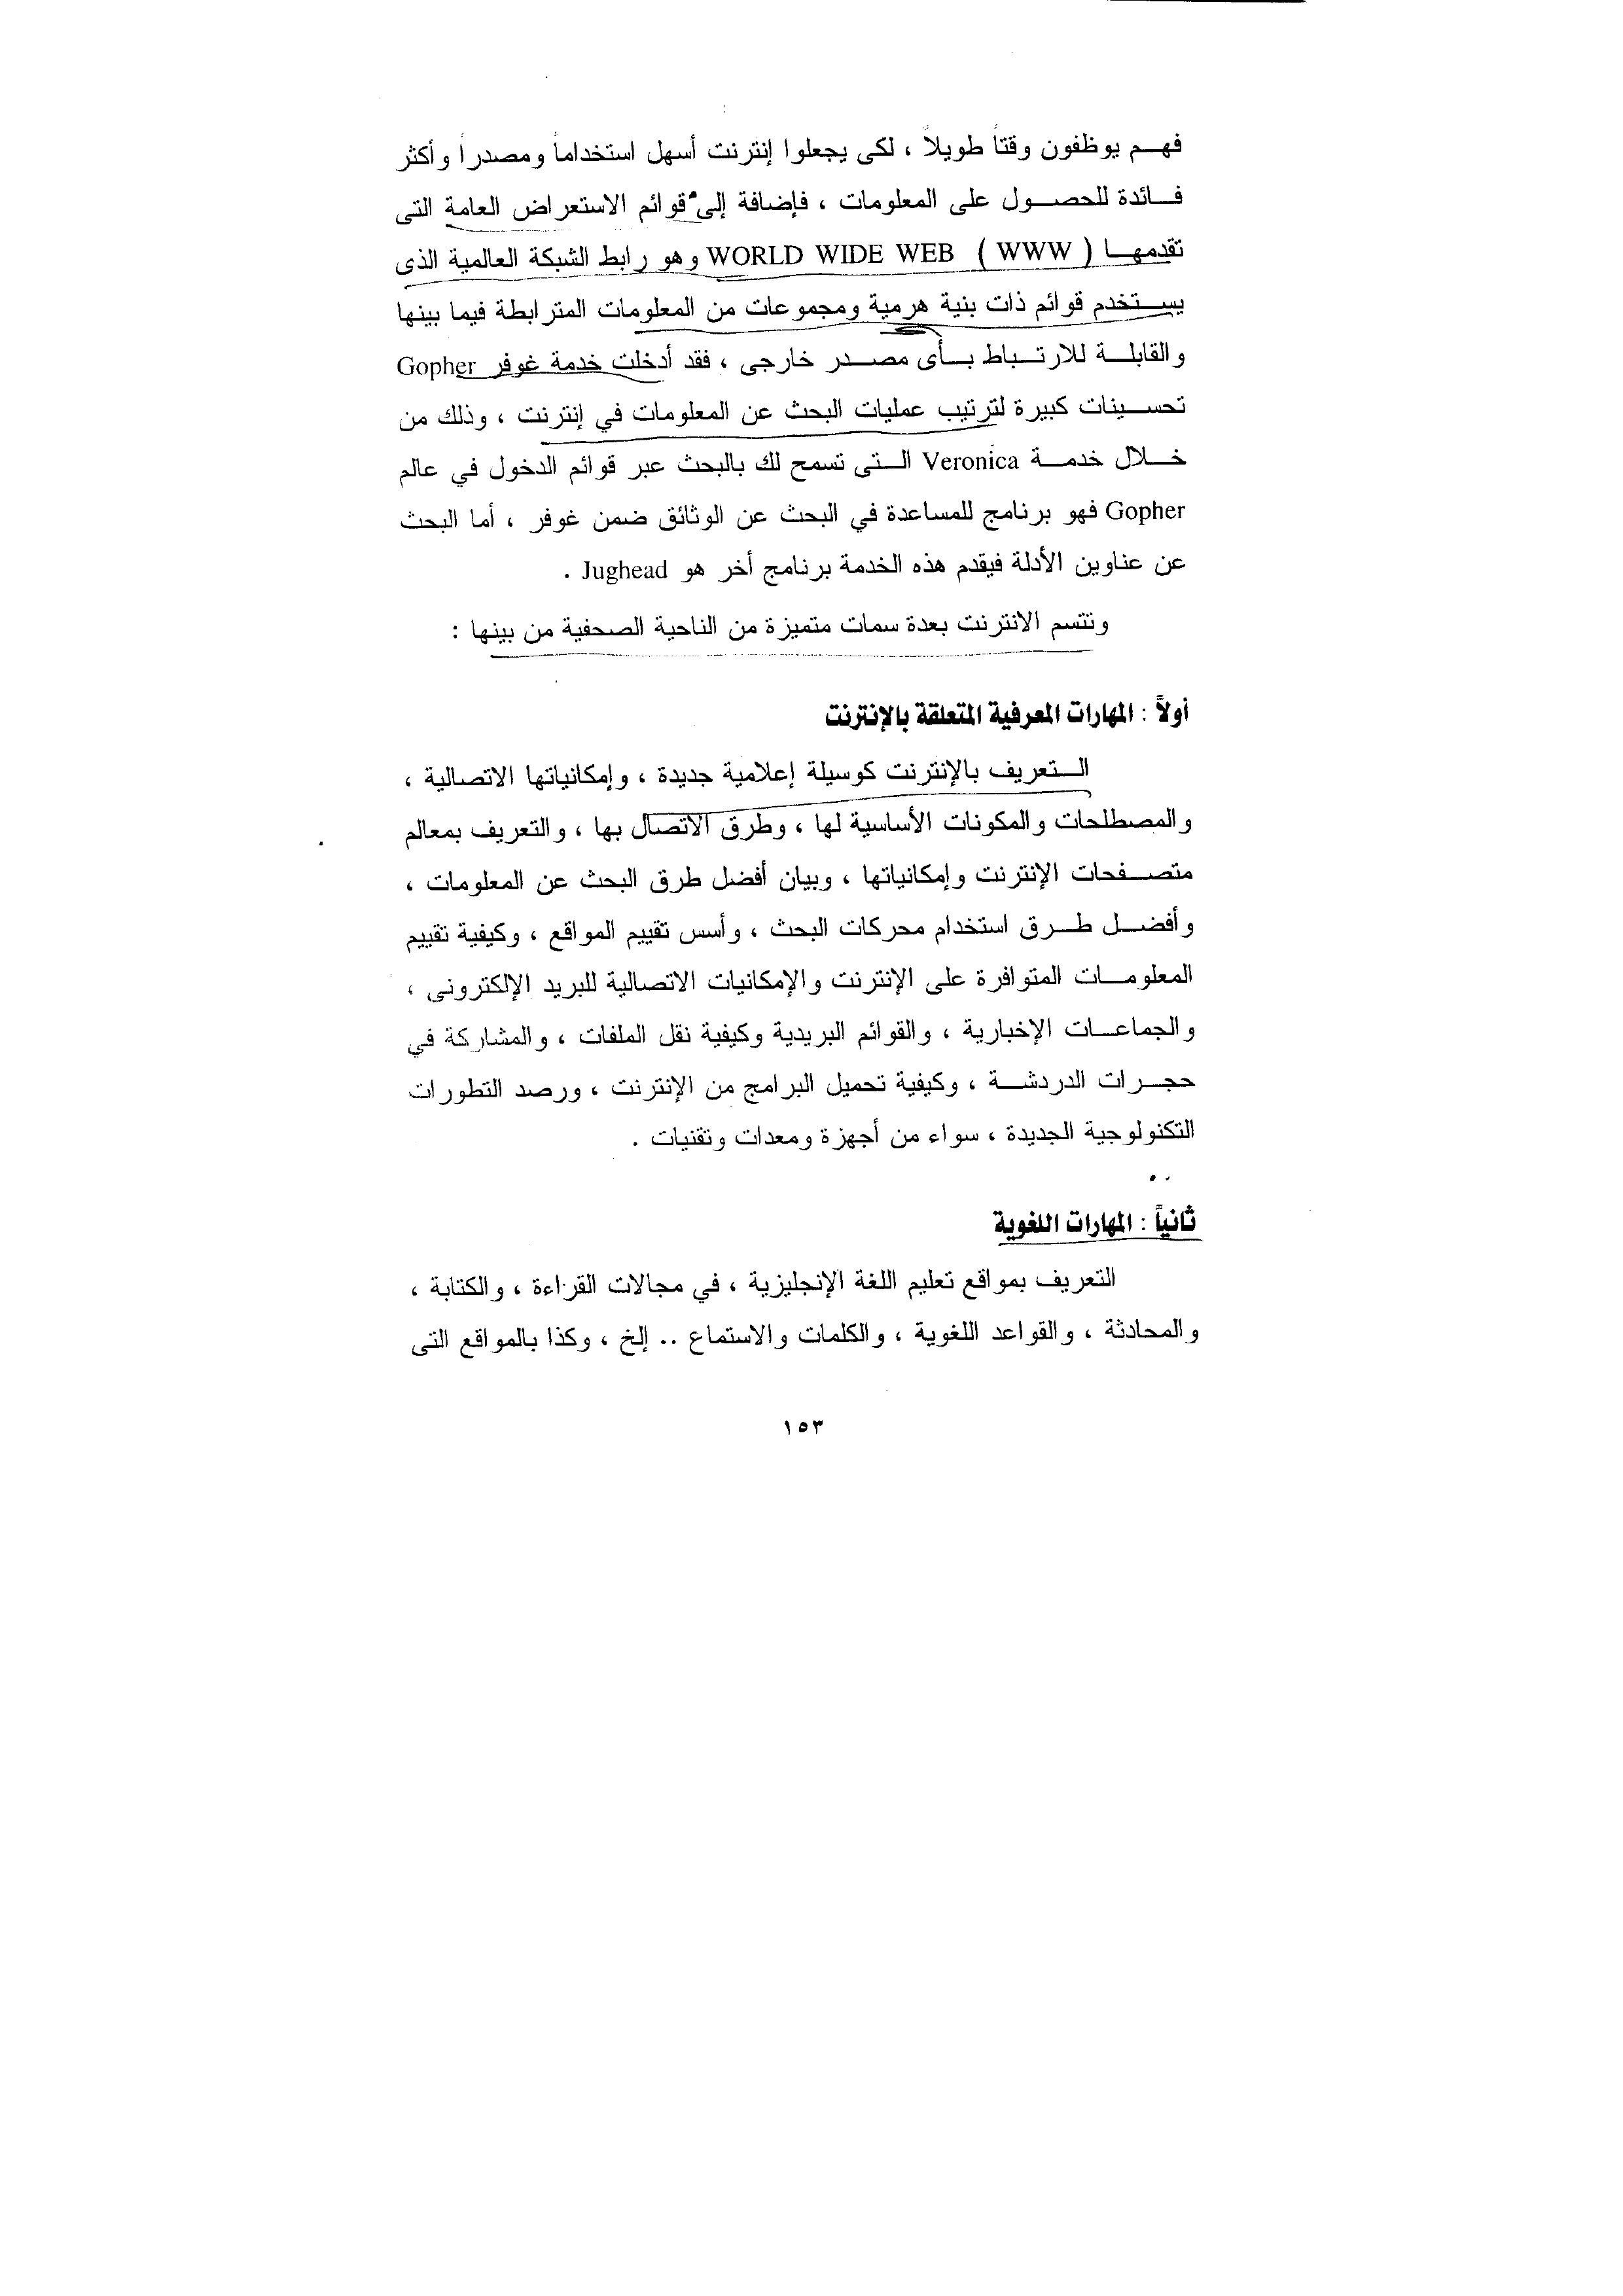 فهم يوظفون وقتاً طويلاً ، لكى يجعلوا إنترنت أسهل استخداماً ومصدراً وأكثر
فائدة للحصول على المعلومات ، فإضافة إلى قوائم الاستعراض العامة التى
تقدمها ( WWW ) WORLD WIDE WEB وهو رابط الشبكة العالمية الذى
يستخدم قوائم ذات بنية هرمية ومجموعات من المعلومات المترابطة فيما بينها
والقابلة للارتباط بأى مصدر خارجى ، فقد أدخلت خدمة غوفر Gopher
تحسينات كبيرة لترتيب عمليات البحث عن المعلومات في إنترنت ، وذلك من
خلال خدمة Veronica التى تسمح لك بالبحث عبر قوائم الدخول في عالم
Gopher فهو برنامج للمساعدة في البحث عن الوثائق ضمن غوفر ، أما البحث
عن عناوين الأدلة فيقدم هذه الخدمة برنامج أخر هو Jughead .
وتتسم الانترنت بعدة سمات متميزة من الناحية الصحفية من بينها :
أولاً : المهارات المعرفية المتعلقة بالإنترنت
التعريف بالإنترنت كوسيلة إعلامية جديدة ، وإمكانياتها الاتصالية ،
والمصطلحات والمكونات الأساسية لها ، وطرق الاتصال بها ، والتعريف بمعالم
متصفحات الإنترنت وإمكانياتها ، وبيان أفضل طرق البحث عن المعلومات ،
وأفضل طرق استخدام محركات البحث ، وأسس تقييم المواقع ، وكيفية تقييم
المعلومات المتوافرة على الإنترنت والإمكانيات الاتصالية للبريد الإلكترونى ،
والجماعات الإخبارية ، والقوائم البريدية وكيفية نقل الملفات ، والمشاركة في
حجرات الدردشة ، وكيفية تحميل البرامج من الإنترنت ، ورصد التطورات
التكنولوجية الجديدة ، سواء من أجهزة ومعدات وتقنيات .
ثانياً : المهارات اللغوية
التعريف بمواقع تعليم اللغة الإنجليزية ، في مجالات القراءة ، والكتابة ،
والمحادثة ، والقواعد اللغوية ، والكلمات والاستماع .. إلخ ، وكذا بالمواقع التى
١٥٣